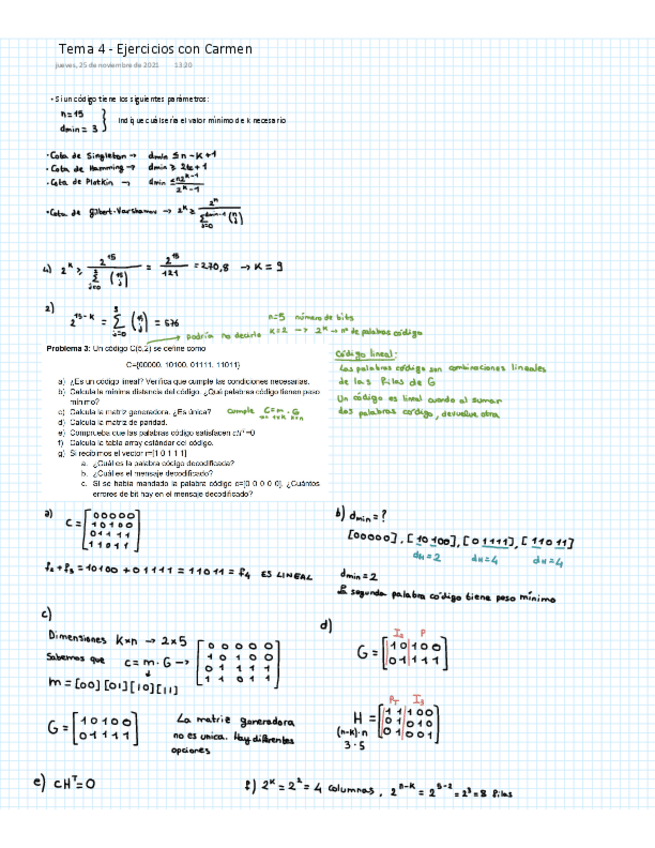 Tema 4 - Ejercicios con Carmen
jueves, 25 de noviembre de 2021 13:20
• Si un código tiene los siguientes parámetros:
n=15
dmin = 3
Indique cuál sería el valor mínimo de k necesario
• Cota de Singleton → dmin ≤ n-k+1
• Cota de Hamming → dmin ≥ 2tc+1
• Cota de Plotkin → dmin ≤ n2^k-1 / 2^k-1
• Cota de Gilbert-Varshamov → 2^k ≥ 2^n / Σ_{j=0}^{dmin-1} (n j)
2^k ≥ 2^15 / Σ_{j=0}^{2} (15 j) = 2^15 / 121 = 270,8 → K = 9
2)
2^15-k = Σ_{j=0}^{3} (15 j) = 576
n=5 número de bits
podría no decirlo k=2 → 2^k → nº de palabras código
Problema 3: Un código C(5,2) se define como
C={00000, 10100, 01111, 11011}
a) ¿Es un código lineal? Verifica que cumple las condiciones necesarias.
b) Calcula la mínima distancia del código. ¿Qué palabras código tienen peso
mínimo?
c) Calcula la matriz generadora. ¿Es única? cumple C=m·G
d) Calcula la matriz de paridad.
e) Comprueba que las palabras código satisfacen cH^T=0
f) Calcula la tabla array estándar del código.
g) Si recibimos el vector r=[1 0 1 1 1]
a. ¿Cuál es la palabra código decodificada?
b. ¿Cuál es el mensaje decodificado?
c. Si se había mandado la palabra código c=[0 0 0 0 0], ¿Cuántos
errores de bit hay en el mensaje decodificado?
Código lineal:
Las palabras código son combinaciones lineales
de las filas de G
Un código es lineal cuando al sumar
dos palabras código, devuelve otra
a)
C = [00000
10100
01111
11011]
f2 + f3 = 10100 + 01111 = 11011 = f4 ES LINEAL
b) dmin = ?
[00000], [10100], [01111], [11011]
dH=2 dH=4 dH=4
dmin = 2
La segunda palabra código tiene peso mínimo
c)
Dimensiones K×n → 2×5
Sabemos que c = m · G →
[0 0 0 0 0
1 0 1 0 0
0 1 1 1 1
1 1 0 1 1]
m = [00] [01] [10] [11]
G = [10100
01111]
La matriz generadora
no es unica. Hay diferentes
opciones
d)
I2 P
G = [10|100
01|111]
PT I3
H = [1 1 1 0 0
0 1 0 1 0
0 1 0 0 1]
(n-k)·n
3·5
e) cH^T=0
f) 2^k = 2^2 = 4 columnas, 2^n-k = 2^5-2 = 2^3 = 8 filas